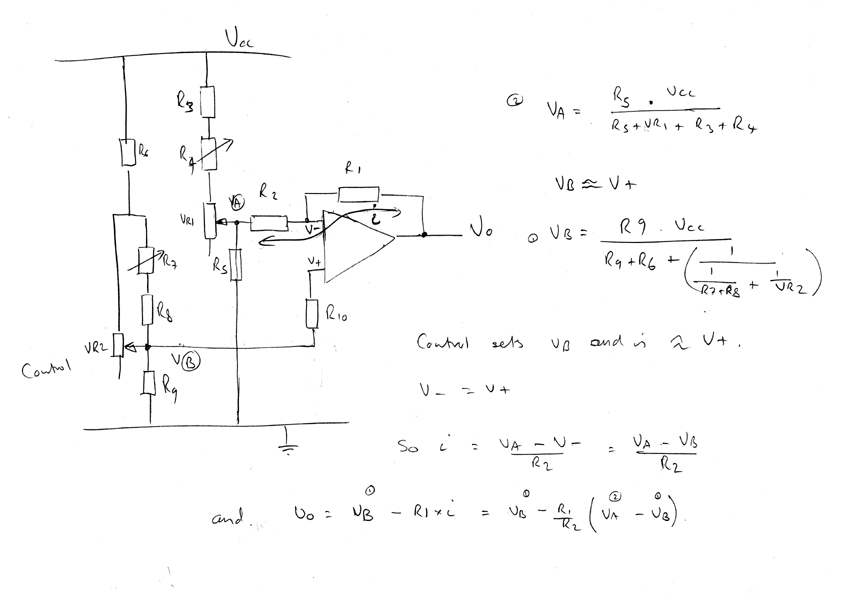 Vcc
R3
R6
R4
VR1
VA
R2
R1
i
V-
V+
Vo
R5
R7
R8
R10
VR2
Control
V(B)
R9
② VA = R5 . Vcc / R5 + VR1 + R3 + R4
VB ≈ V+
① VB = R9 . Vcc / R9 + R6 + (1 / (1/R7+R8 + 1/VR2))
Control sets VB and is ≈ V+.
V- = V+
So i = VA - V- / R2 = VA - VB / R2
and. Vo = VB① - R1 × i = VB① - R1/R2 (VA② - VB①)